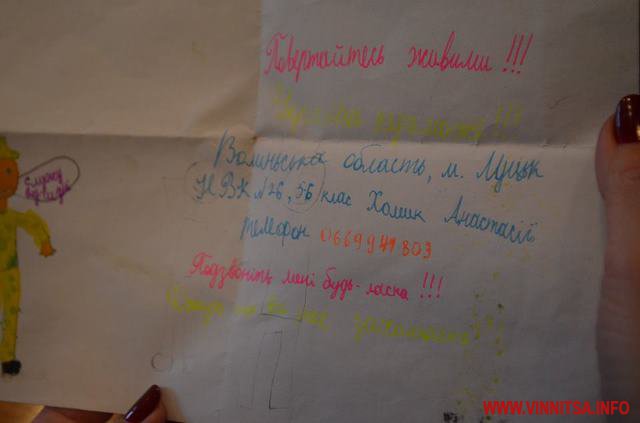 Повертайтесь живими!!!
Україна переможе!!!
Волинська область, м. Луцьк
НВК №26, 5-Б клас Хомик Анастасії
телефон 0669941803
Подзвоніть мені будь-ласка!!!
нас
WWW.VINNITSA.INFO